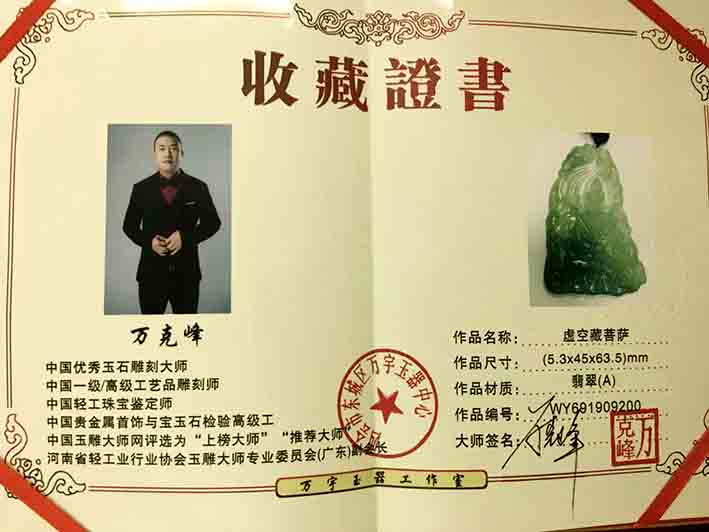 收藏證書
万克峰
中国优秀玉石雕刻大师
中国一级/高级工艺品雕刻师
中国轻工珠宝鉴定师
中国贵金属首饰与宝玉石检验高级工
中国玉雕大师网评选为“上榜大师”“推荐大师”
河南省轻工业行业协会玉雕大师专业委员会(广东)副会长
作品名称: 虚空藏菩萨
作品尺寸: (5.3x45x63.5)mm
作品材质: 翡翠(A)
作品编号: WY691909200
大师签名:
四会市东城区万宇玉器中心
万克峰
万宇玉器工作室